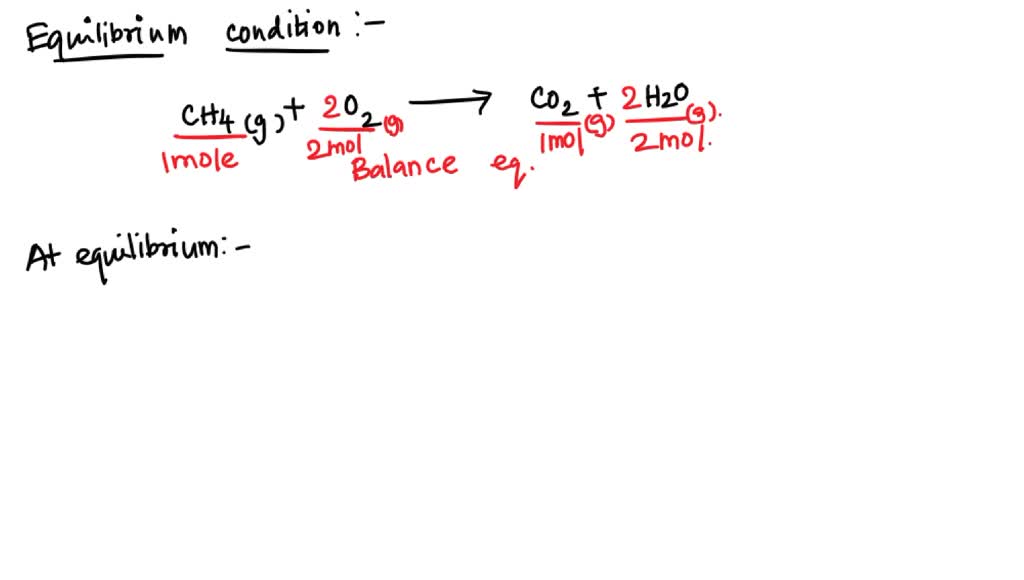 Equilibrium condition :-
CH4 (g) + 2O2 (g) ⟶ CO2 (g) + 2H2O (g).
1mole 2mol 1mol 2mol.
Balance eq.
At equilibrium:-